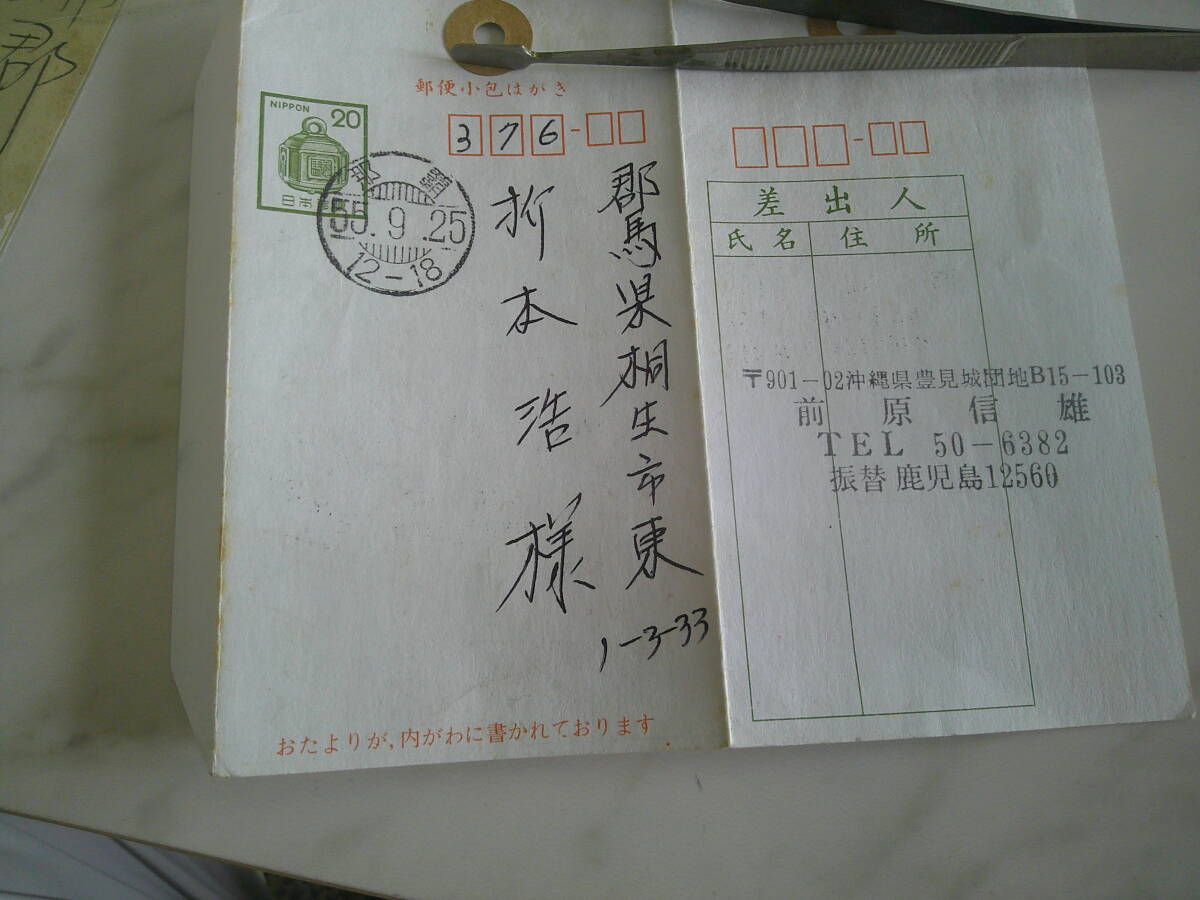 郡
郵便小包はがき
NIPPON
20
日本郵便
那覇
55.9.25
12-18
376-
郡馬県桐生市東
1-3-33
折本浩様
おたよりが、内がわに書かれております
差出人
氏名 住所
〒901-02沖縄県豊見城団地B15-103
前原信雄
TEL 50-6382
振替 鹿児島12560